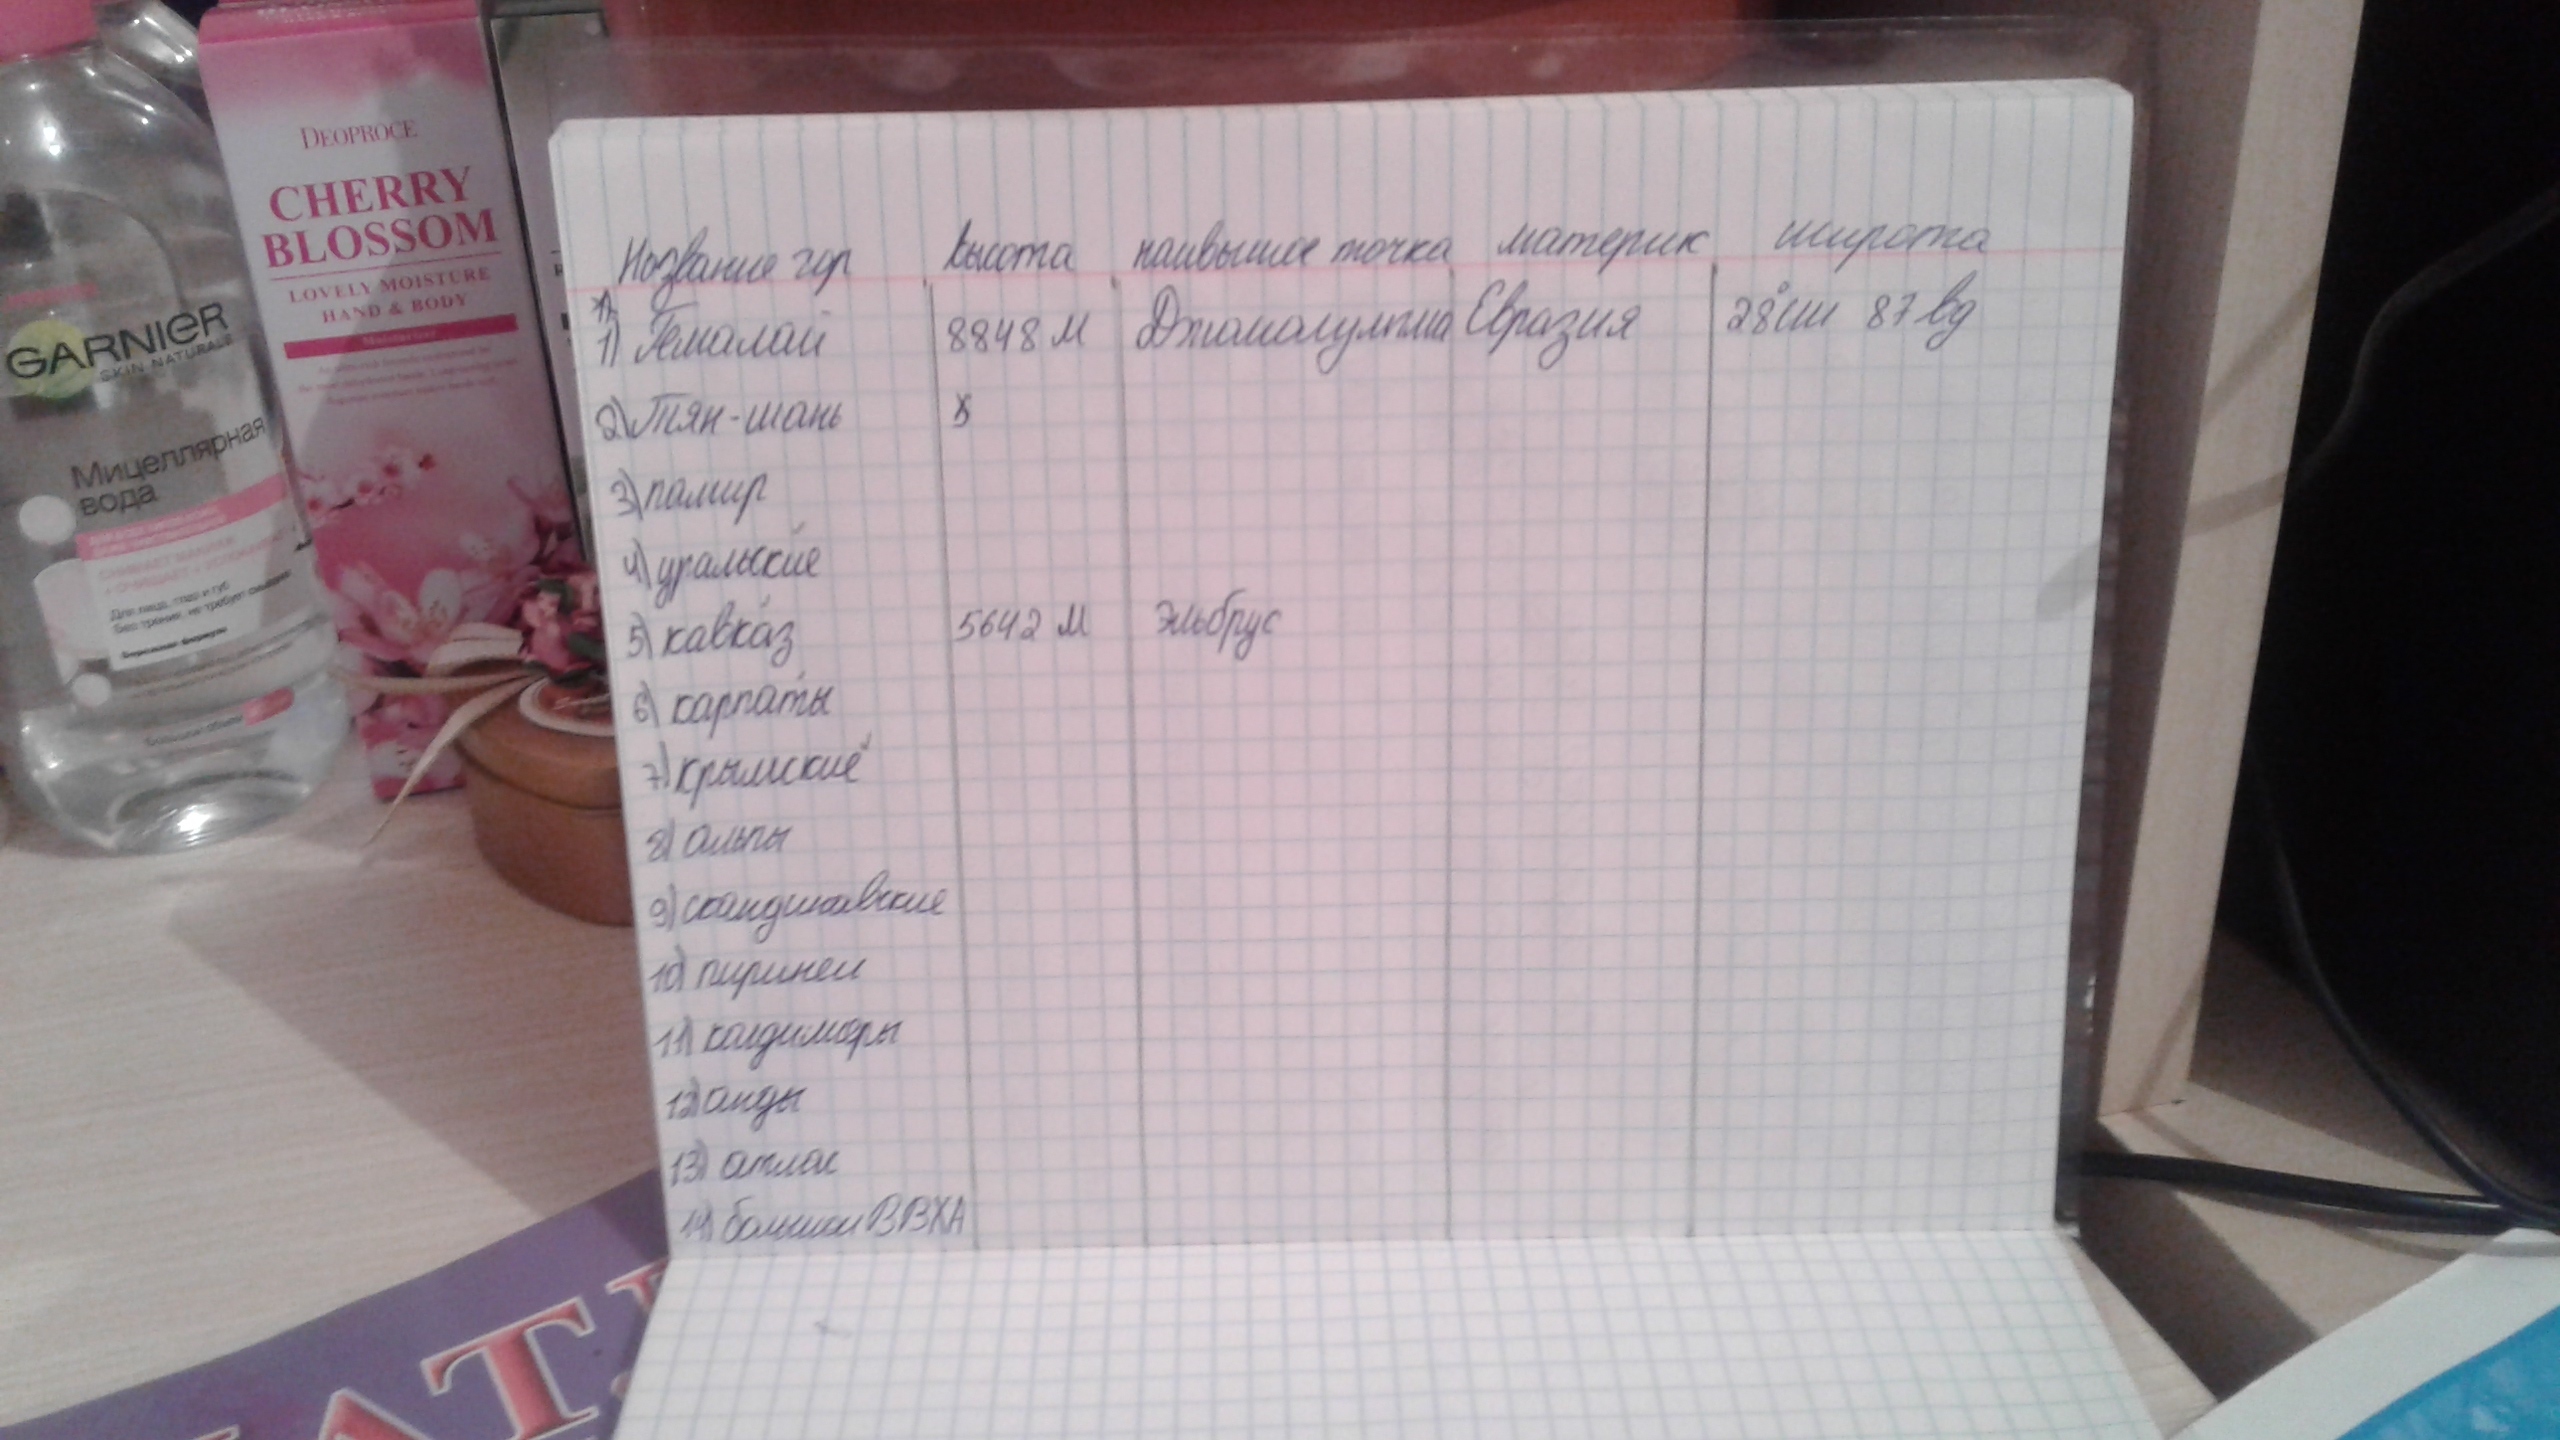 DEOPROCE
CHERRY
BLOSSOM
LOVELY MOISTURE
HAND & BODY
GARNIER
SKIN NATURALS
Мицеллярная
вода
Для лица, глаз и губ
Название гор высота наивысшее точка материк широта
1) Гемалаи 8848 м Джомолунгма Евразия 28° сш 87 вд
2) Тян-шань
3) памир
4) уральские
5) кавказ 5642 м Эльбрус
6) карпаты
7) крымские
8) альпы
9) скандинавские
10) пиринеи
11) кордильеры
12) анды
13) атлас
14) большой ВВХА